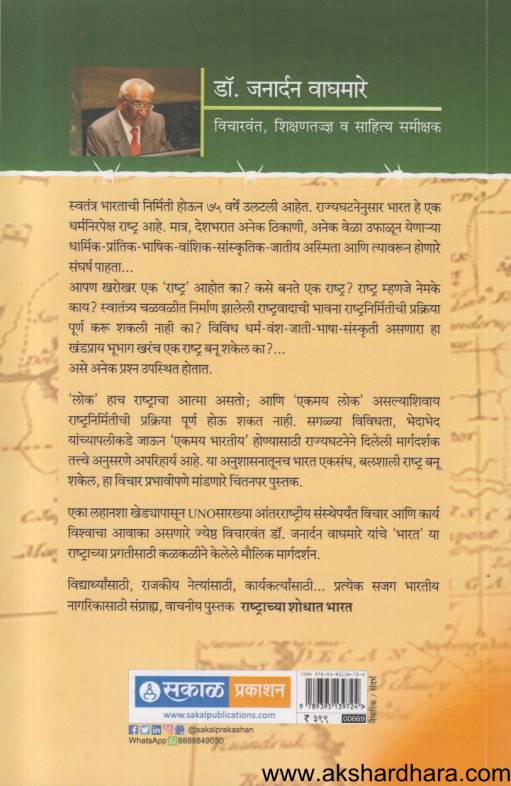 डॉ. जनार्दन वाघमारे
विचारवंत, शिक्षणतज्ज्ञ व साहित्य समीक्षक
स्वतंत्र भारताची निर्मिती होऊन ७५ वर्षे उलटली आहेत. राज्यघटनेनुसार भारत हे एक
धर्मनिरपेक्ष राष्ट्र आहे. मात्र, देशभरात अनेक ठिकाणी, अनेक वेळा उफाळून येणाऱ्या
धार्मिक-प्रांतिक-भाषिक-वांशिक-सांस्कृतिक-जातीय अस्मिता आणि त्यावरून होणारे
संघर्ष पाहता...
आपण खरोखर एक ‘राष्ट्र’ आहोत का? कसे बनते एक राष्ट्र? राष्ट्र म्हणजे नेमके
काय? स्वातंत्र्य चळवळीत निर्माण झालेली राष्ट्रवादाची भावना राष्ट्रनिर्मितीची प्रक्रिया
पूर्ण करू शकली नाही का? विविध धर्म-वंश-जाती-भाषा-संस्कृती असणारा हा
खंडप्राय भूभाग खरंच एक राष्ट्र बनू शकेल का?...
असे अनेक प्रश्न उपस्थित होतात.
‘लोक’ हाच राष्ट्राचा आत्मा असतो; आणि ‘एकमय लोक’ असल्याशिवाय
राष्ट्रनिर्मितीची प्रक्रिया पूर्ण होऊ शकत नाही. सगळ्या विविधता, भेदाभेद
यांच्यापलीकडे जाऊन ‘एकमय भारतीय’ होण्यासाठी राज्यघटनेने दिलेली मार्गदर्शक
तत्त्वे अनुसरणे अपरिहार्य आहे. या अनुशासनातूनच भारत एकसंघ, बलशाली राष्ट्र बनू
शकेल, हा विचार प्रभावीपणे मांडणारे चिंतनपर पुस्तक.
एका लहानशा खेड्यापासून UNOसारख्या आंतरराष्ट्रीय संस्थेपर्यंत विचार आणि कार्य
विश्वाचा आवाका असणारे ज्येष्ठ विचारवंत डॉ. जनार्दन वाघमारे यांचे ‘भारत’ या
राष्ट्राच्या प्रगतीसाठी कळकळीने केलेले मौलिक मार्गदर्शन.
विद्यार्थ्यांसाठी, राजकीय नेत्यांसाठी, कार्यकर्त्यांसाठी... प्रत्येक सजग भारतीय
नागरिकासाठी संग्राह्य, वाचनीय पुस्तक राष्ट्राच्या शोधात भारत
DECAN
सकाळ प्रकाशन
www.sakalpublications.com
@sakalprakashan
WhatsApp 8888849050
ISBN 978-93-95139-72-4
9 789395 139724
₹ ३९९
00669
वैचारिक / संदर्भ
www.akshardhara.com